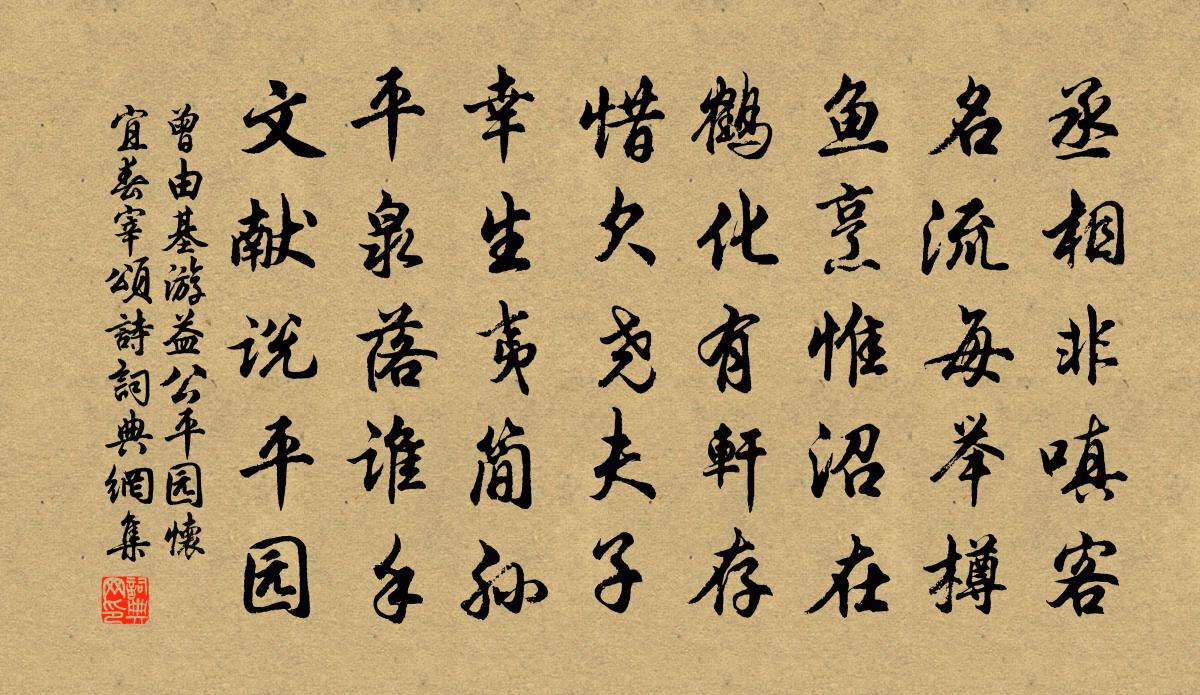 丞相非嗔客
名流每举樽
鱼烹惟沼在
鹤化有軒存
惜欠尧夫子
幸生夷简孙
平泉落谁手
文献说平园
曾由基游益公平园懷
宜春宰頌詩詞典網集
詞典
网印